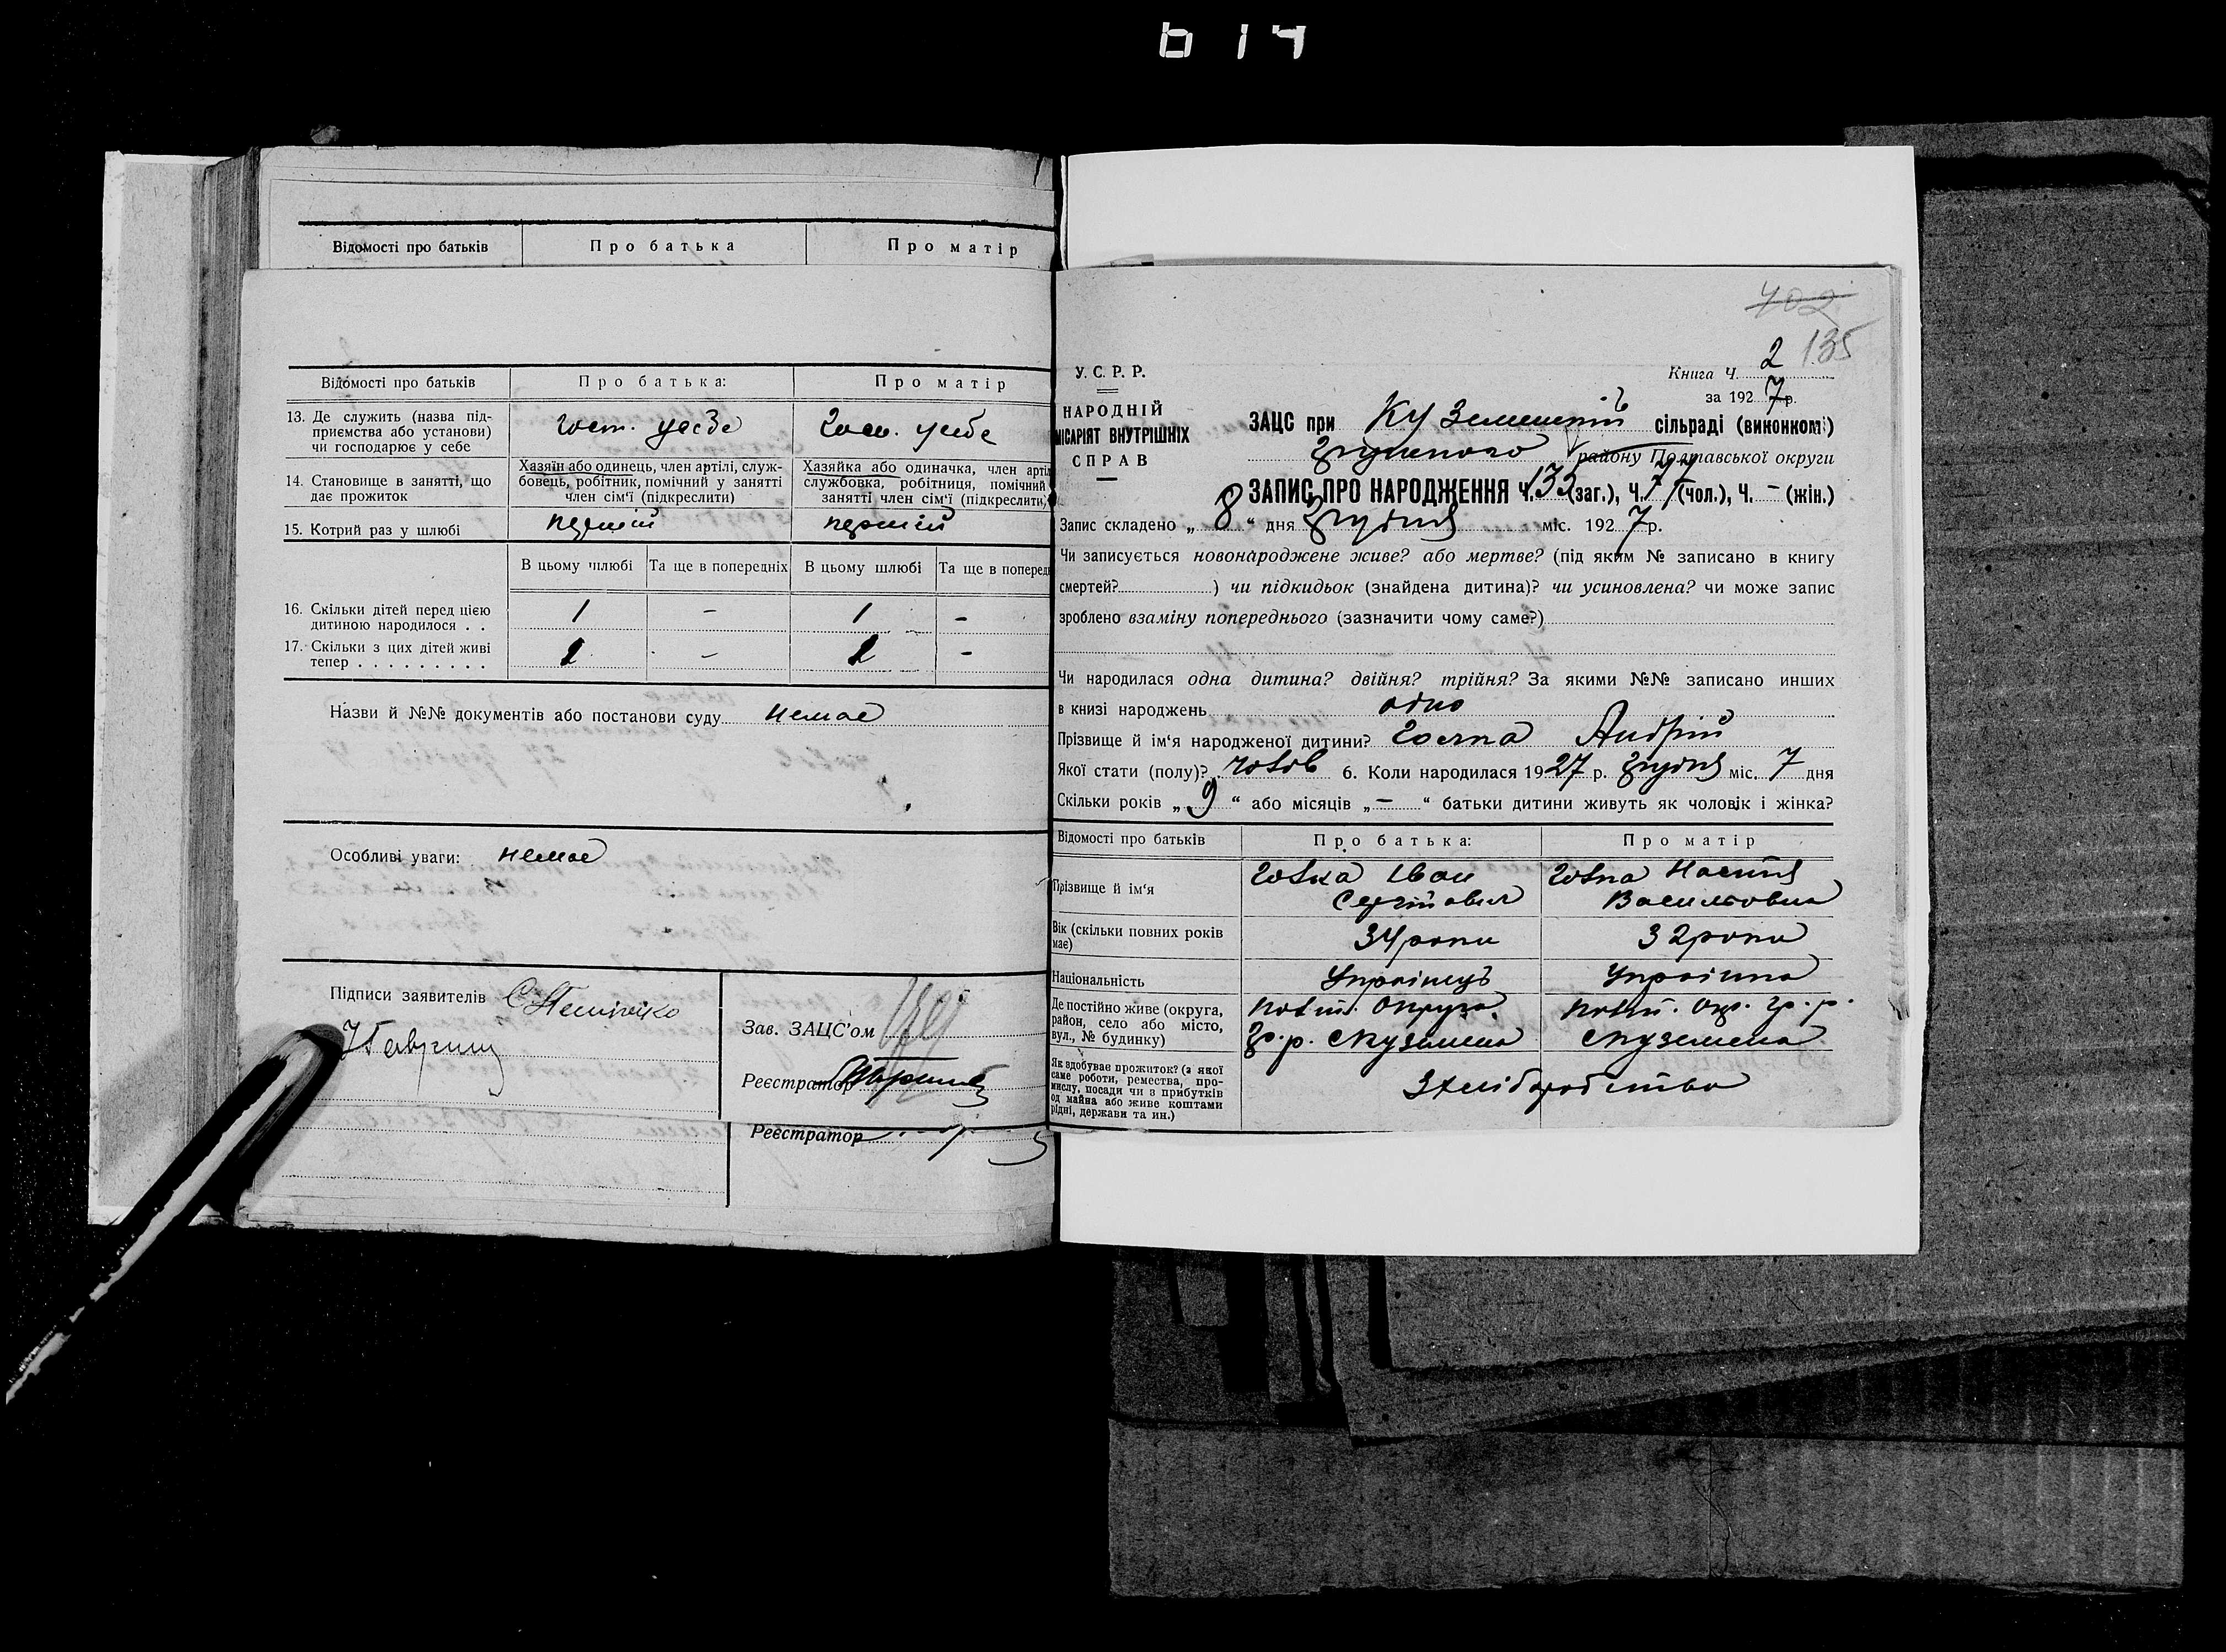 614
Відомості про батьків Про батька Про матір
Відомості про батьків Про батька: Про матір
13. Де служить (назва під-
приємства або установи)
чи господарює у себе
госп. у себе госп. у себе
14. Становище в занятті, що
дає прожиток
Хазяїн або одинець, член артілі, служ-
бовець, робітник, помічний у занятті
член сім'ї (підкреслити)
Хазяйка або одиначка, член артіл
службовка, робітниця, помічний
занятті член сім'ї (підкреслити)
15. Котрий раз у шлюбі перший перший
В цьому шлюбі Та ще в попередніх В цьому шлюбі Та ще в поперед
16. Скільки дітей перед цією
дитиною народилося . . 1 - 1 -
17. Скільки з цих дітей живі
тепер . . . . . . . . . 1 - 1 -
Назви й №№ документів або постанови суду немає
Особливі уваги: немає
Підписи заявителів
Зав. ЗАЦС'ом
Реєстратор
Реєстратор
402
135
У. С. Р. Р.
НАРОДНІЙ
МІСАРІЯТ ВНУТРІШНІХ
СПРАВ
Книга Ч. 2
за 1927 р.
ЗАЦС при сільраді (виконкомі)
району Полтавської округи
ЗАПИС ПРО НАРОДЖЕННЯ Ч. 133 (заг.), Ч. 77 (чол.), Ч. - (жін.)
Запис складено „ 8 “ дня Грудня міс. 1927 р.
Чи записується новонароджене живе? або мертве? (під яким № записано в книгу
смертей? ) чи підкидьок (знайдена дитина)? чи усиновлена? чи може запис
зроблено взаміну попереднього (зазначити чому саме?)
Чи народилася одна дитина? двійня? трійня? За якими №№ записано инших
в книзі народжень одно
Прізвище й ім'я народженої дитини? Андрій
Якої стати (полу)? 6. Коли народилася 1927 р. грудня міс. 7 дня
Скільки років „ 9 “ або місяців „ - “ батьки дитини живуть як чоловік і жінка?
Відомості про батьків Про батька: Про матір
Прізвище й ім'я
Іван
Сергійович
Настя
Васильовна
Вік (скільки повних років
має)
34 роки 32 роки
Національність Українець Українка
Де постійно живе (округа,
район, село або місто,
вул., № будинку)
Полт. Округа Полт. Окр. Гр. р.
Гр. р. с Куземена с Куземена
Як здобуває прожиток? (з якої
саме роботи, ремества, про-
мислу, посади чи з прибутків
од майна або живе коштами
рідні, держави та ин.)
Хліборобство